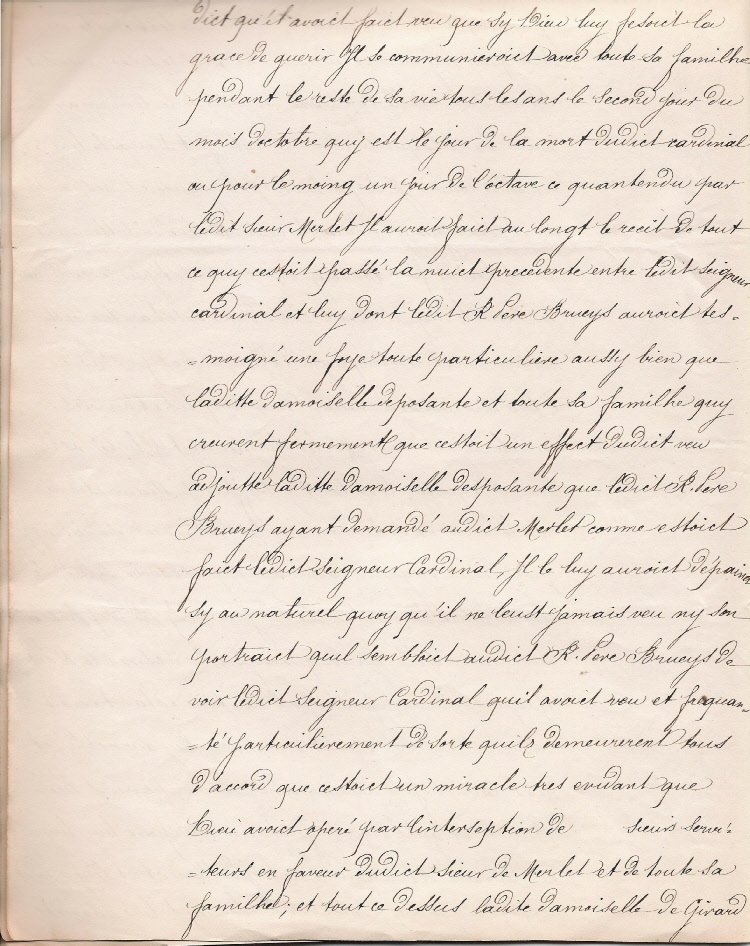 dict qu'il avoict faict veu que sy Dieu luy fesoict la
grace de guerir Il se communieroict avec toute sa familhe
pendant le reste de sa vie tous les ans le second jour du
mois doctobre quy est le jour de la mort dudict cardinal
ou pour le moing un jour de l'octave ce quantendu par
ledit sieur Merlet Il auroit faict au longt le recit de tout
ce quy cestoit passé la nuict precedente entre ledit seigneur
cardinal et luy dont ledit R Pere Brueys auroict tes-
-moigné une foye toute particuliere aussy bien que
laditte damoiselle deposante et toute sa familhe quy
creurent fermement que cestoit un effect dudict veu
adjoutte laditte damoiselle desposante que ledict R. Pere
Brueys ayant demandé audict Merlet comme estoict
faict ledict seigneur Cardinal, Il le luy auroict dépainct
sy au naturel quoy qu'il ne leust jamais veu ny son
portraict quil sembloict audict R. Pere Brueys de
voir ledict seigneur Cardinal quil avoict veu et frequan-
-té particulierement de sorte quilz demeurerent tous
d'accord que cestoict un miracle tres evidant que
Dieu avoict operé par l'interseption de sieurs servi-
-teurs en faveur dudict sieur de Merlet et de toute sa
familhe; et tout ce dessus ladite damoiselle de Girard